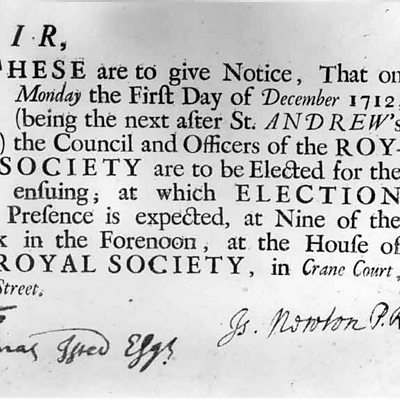 I R,
HESE are to give Notice, That on
Monday the First Day of December 1712,
(being the next after St. ANDREW's
) the Council and Officers of the ROY-
SOCIETY are to be Elected for the
ensuing; at which ELECTION
Presence is expected, at Nine of the
k in the Forenoon, at the House of
ROYAL SOCIETY, in Crane Court,
Street.
Is. Newton P.R